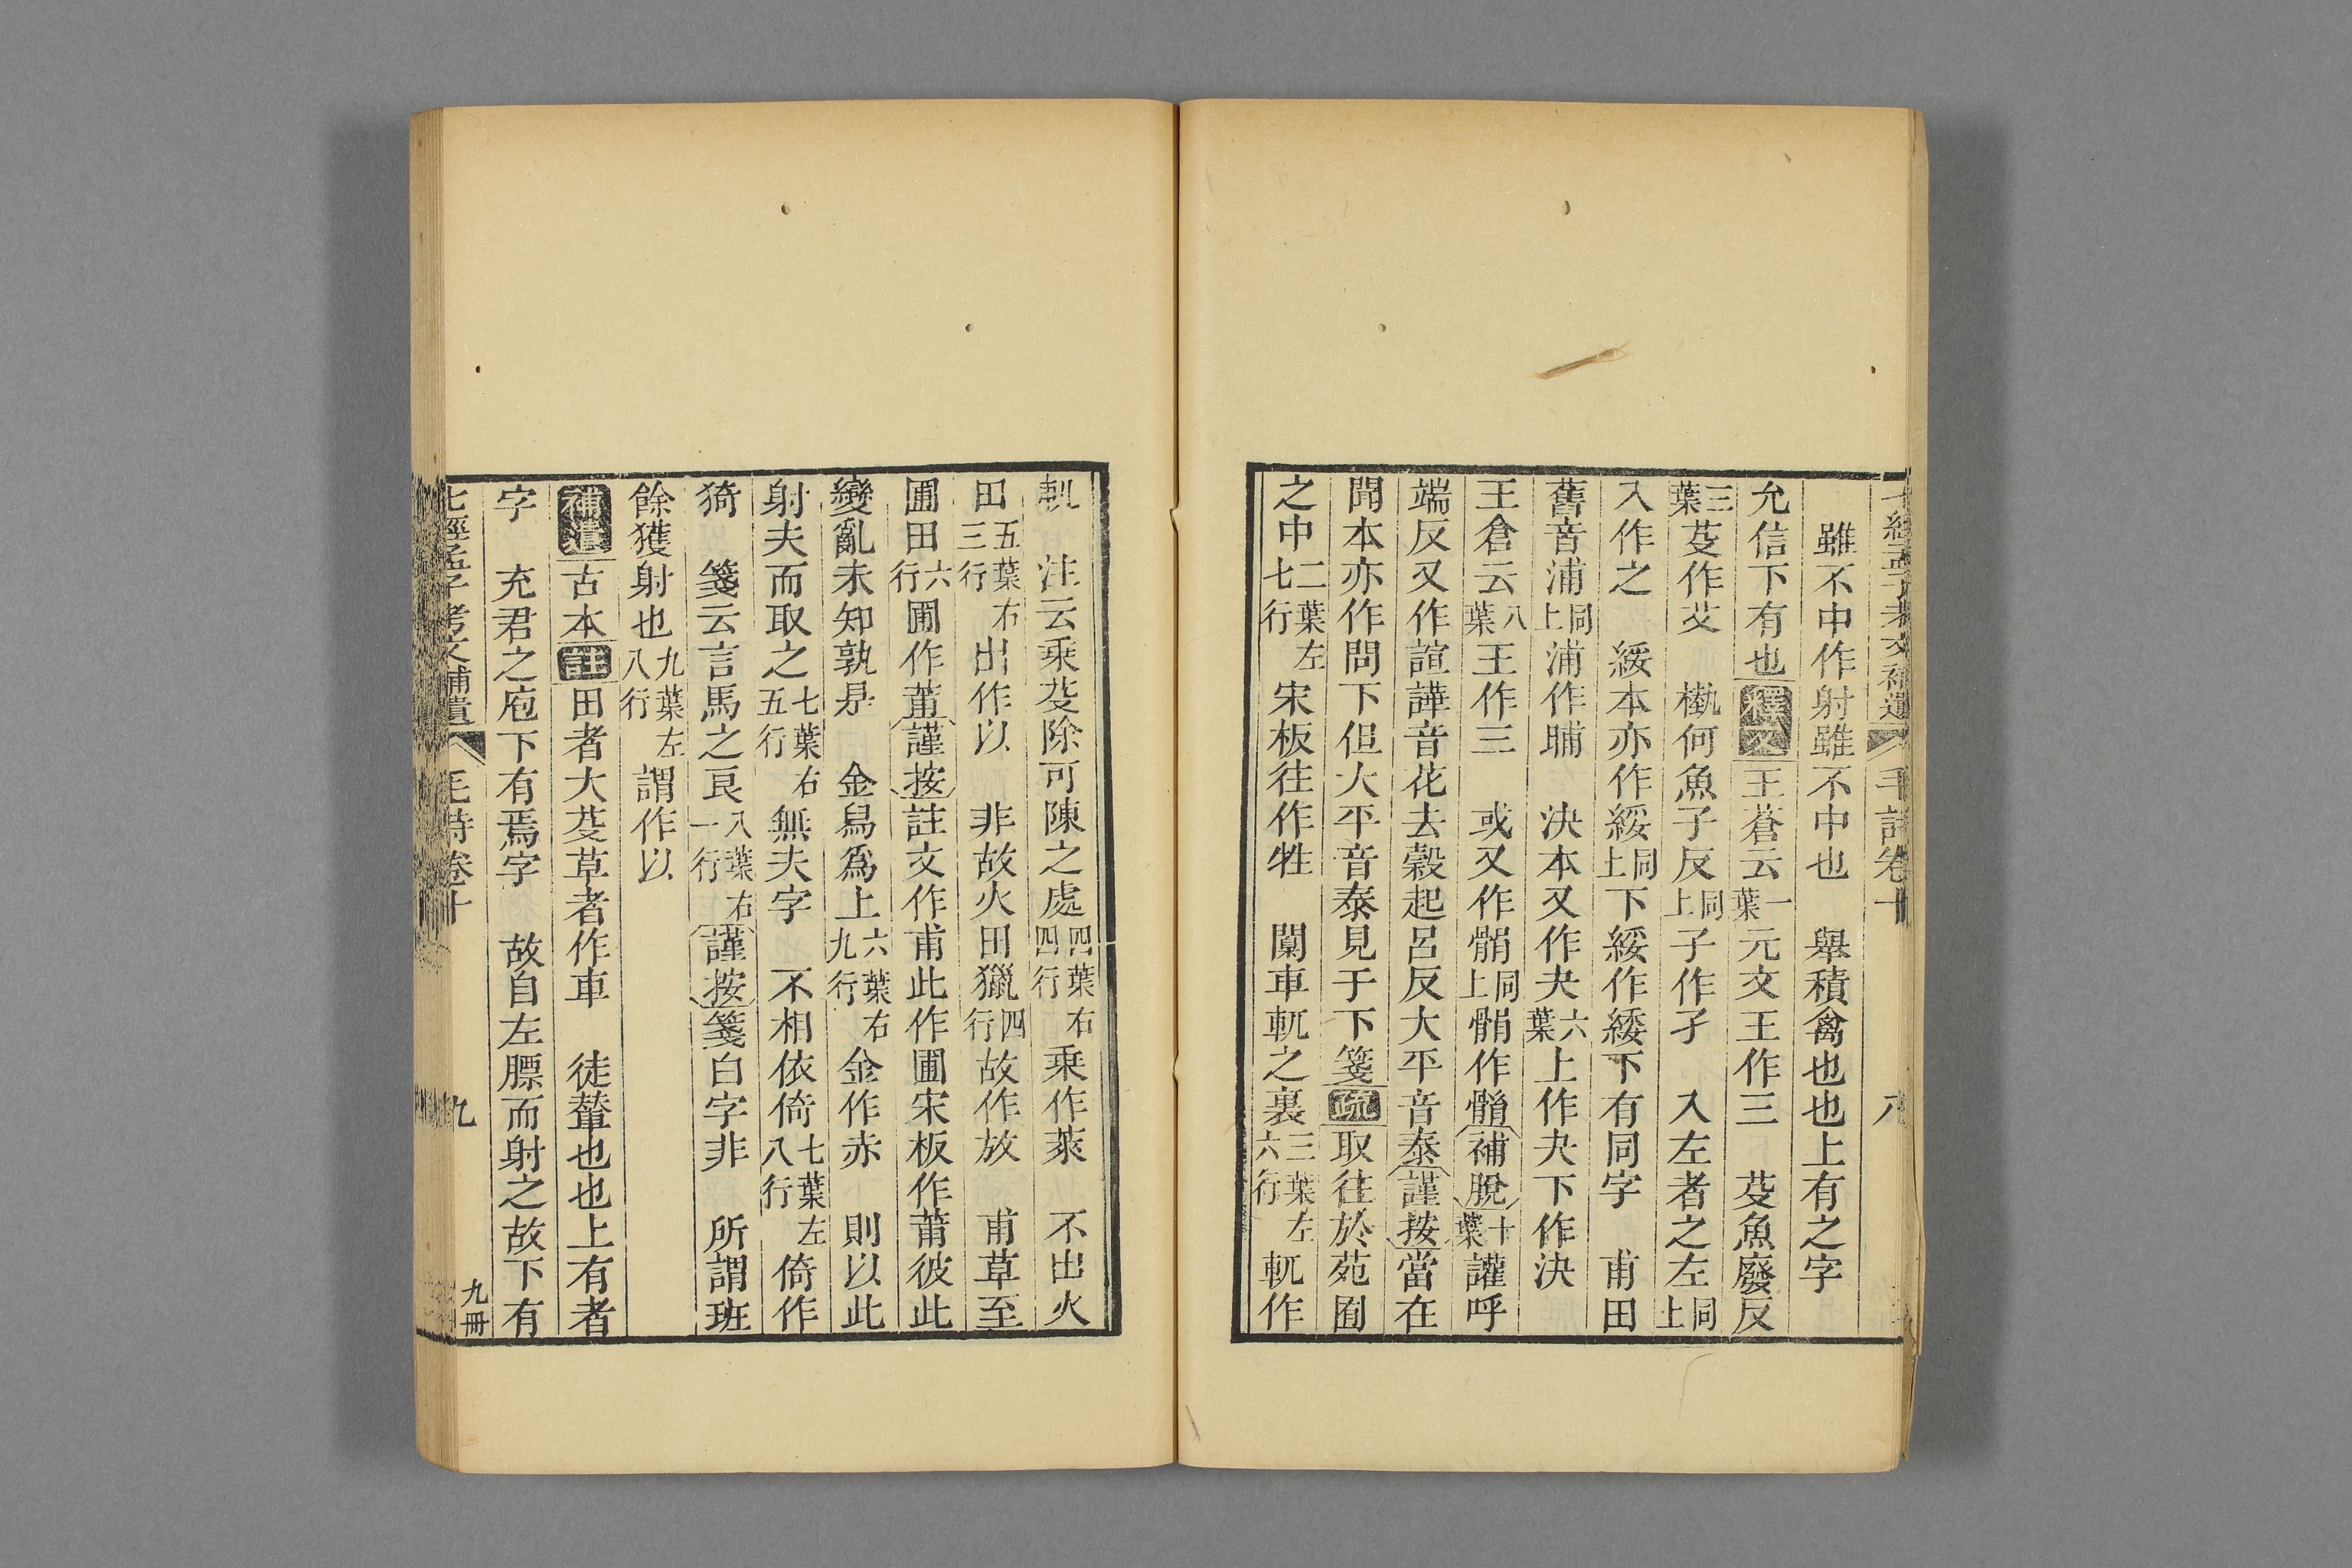 七經孟子考文補遺 毛詩卷十 八
雖不中作射雖不中也 舉積禽也也上有之字
允信下有也釋文王蒼云一葉元文王作三 芟魚廢反
三葉芟作艾 槸何魚子反同上子作孑 入左者之左同上
入作之 綏本亦作綏同上下綏作緌下有同字 甫田
舊音浦同上浦作哺 決本又作夬六葉上作夬下作決
王倉云八葉王作三 或又作䯚同上䯚作髇補脫十葉讙呼
端反又作諠譁音花去穀起呂反大平音泰謹按當在
聞本亦作問下但大平音泰見于下箋疏取往於苑囿
之中二葉左七行宋板往作牲 闑車軏之裏三葉左六行軏作
軌 注云乗芟除可陳之處四葉右四行乗作萊 不出火
田五葉右三行出作以 非故火田獵四行故作放 甫草至
圃田六行圃作莆謹按註文作甫此作圃宋板作莆彼此
變亂未知孰是 金舄爲上六葉右九行金作赤 則以此
射夫而取之七葉右五行無夫字 不相依倚七葉左八行倚作
猗 箋云言馬之良八葉右一行謹按箋白字非 所謂班
餘獲射也九葉左八行謂作以
補遺古本註田者大芟草者作車 徒輦也也上有者
字 充君之庖下有焉字 故自左膘而射之故下有
七經孟子考文補遺 毛詩卷十 九 九冊